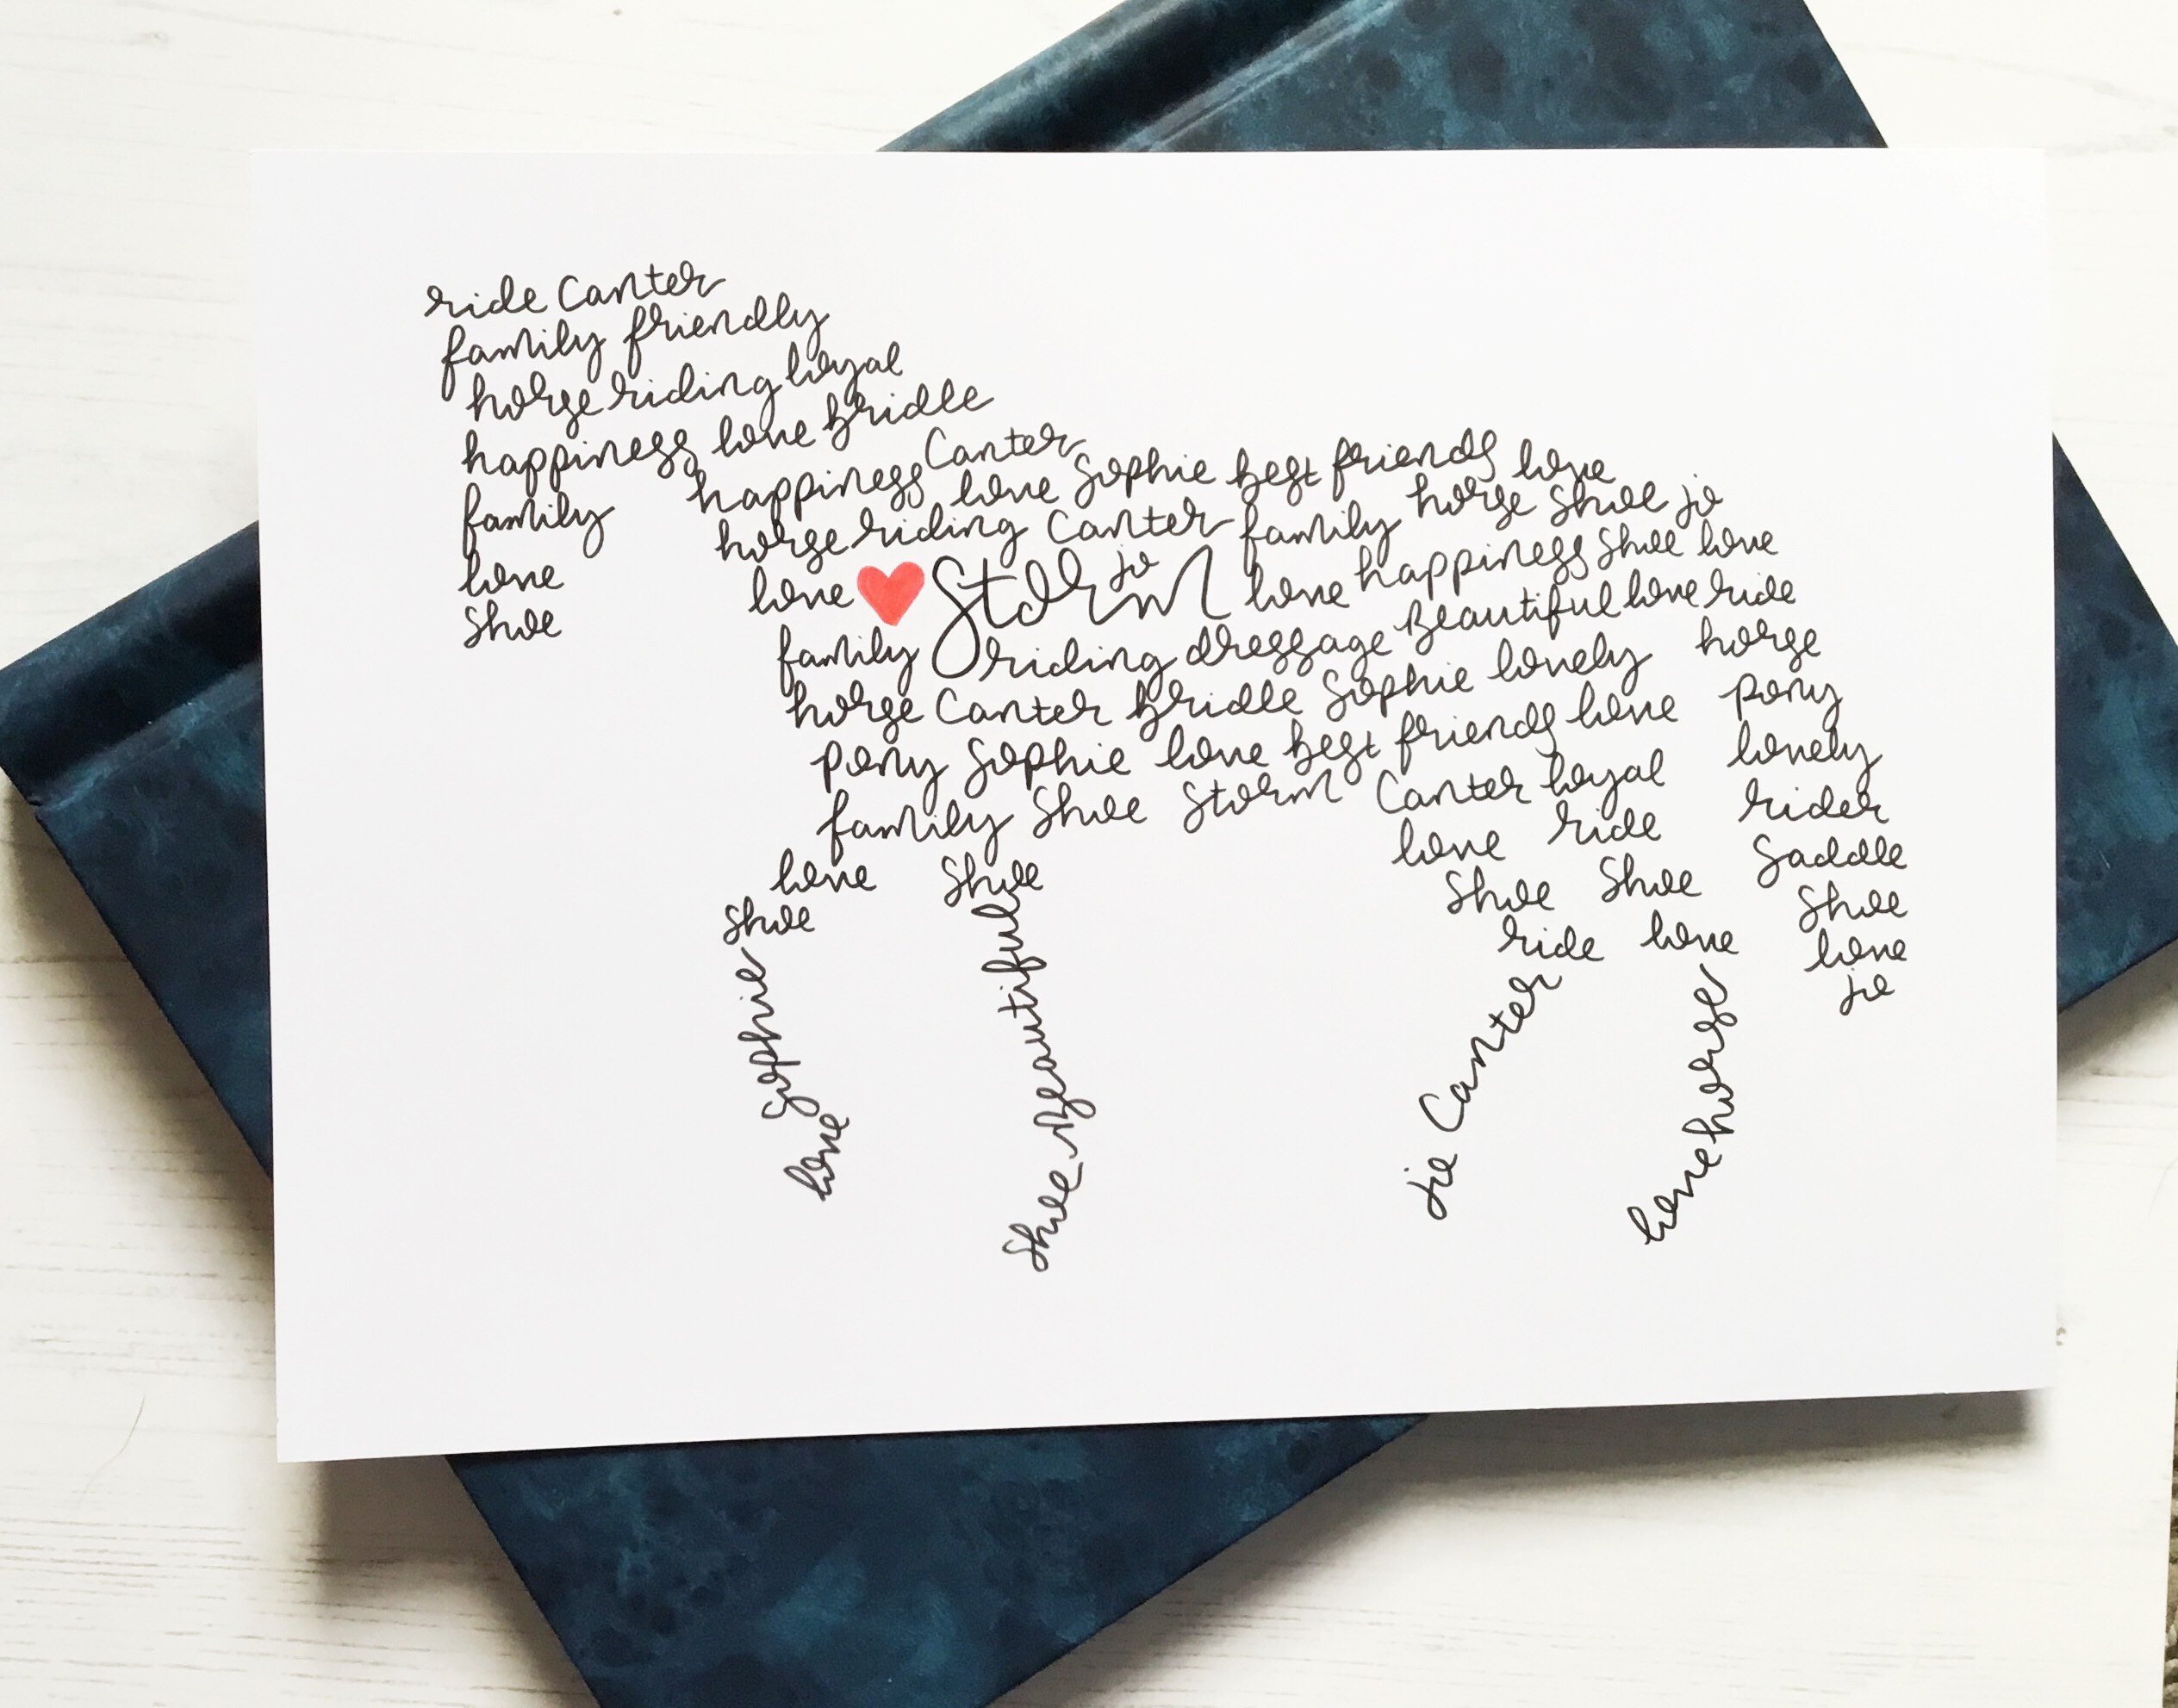 ride Canter
family friendly
horse riding loyal
happiness love bridle
family happiness Canter
love Sophie best friends love
love
shoe
horse riding Canter family horse shoe jo
love Storm jo love happiness shoe love
family riding dressage Beautiful love ride
horse Canter bridle Sophie lovely horse
pony Sophie love best friends love pony
family shoe Storm Canter loyal lovely
love shoe love ride rider
shoe shoe shoe saddle
ride love shoe
love
Sophie
love
shoe Beautiful
Canter
love horse